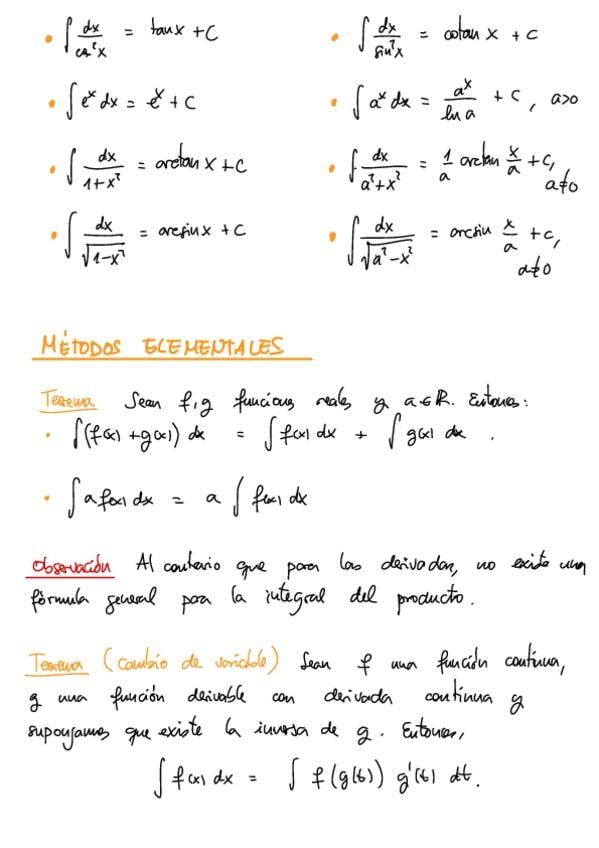 • ∫ dx/cos²x = tan x + C
• ∫ dx/sin²x = cotan x + C
• ∫ eˣ dx = eˣ + C
• ∫ aˣ dx = aˣ/ln a + C, a>0
• ∫ dx/(1+x²) = arctan x + C
• ∫ dx/(a²+x²) = 1/a arctan x/a + C, a≠0
• ∫ dx/√(1-x²) = arcsin x + C
• ∫ dx/√(a²-x²) = arcsin x/a + C, a≠0
MÉTODOS ELEMENTALES
Teorema Sean f, g funciones reales y a∈ℝ. Entonces:
• ∫(f(x)+g(x)) dx = ∫ f(x) dx + ∫ g(x) dx.
• ∫ a f(x) dx = a ∫ f(x) dx
Observación Al contrario que para las derivadas, no existe una
fórmula general para la integral del producto.
Teorema (Cambio de variable) Sean f una función continua,
g una función derivable con derivada continua y
supongamos que existe la inversa de g. Entonces,
∫ f(x) dx = ∫ f(g(t)) g'(t) dt.